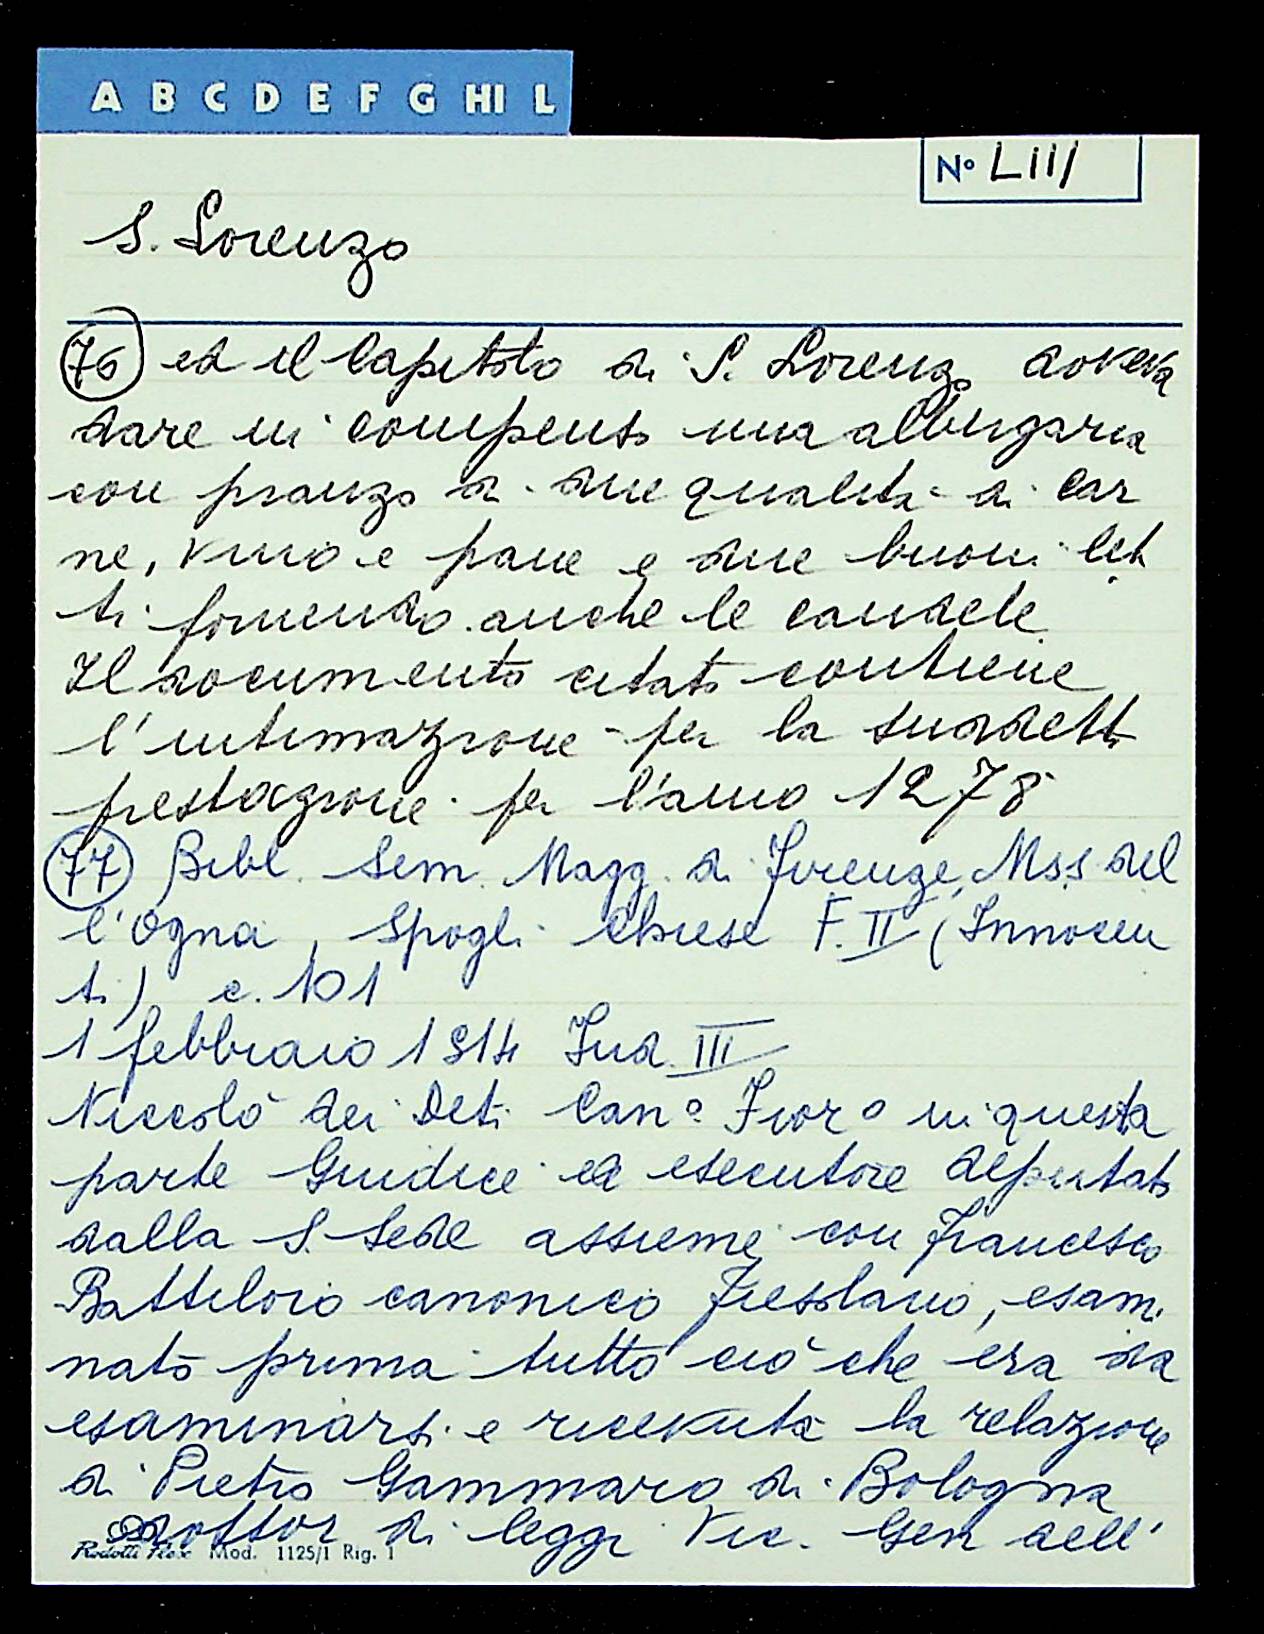 A B C D E F G HI L
N° LIII
S. Lorenzo
76 ed il Capitolo di S. Lorenzo doveva
dare in compenso una albergaria
con pranzo di due qualità di car
ne, vino e pane e due buoni let
ti fornendo anche le candele
Il documento citato contiene
l'intimazione per la suddett
prestazione per l'anno 1278
77 Bibl. Sem. Magg. di Firenze, Mss del
l'Ogna, Spogli Chiese F. II (Innocen
ti) c. 101
1 febbraio 1514 Ind. III
Niccolò dei Deti Can° Fior° in questa
parte Giudice ed esecutore deputato
dalla S. Sede assieme con Francesco
Battiloro canonico Fiesolano, esami
nato prima tutto ciò che era da
esaminarsi e ricevuta la relazione
di Pietro Gammaro di Bologna
Dottor di leggi Vic. Gen dell'
Mod. 1125/1 Rig. 1